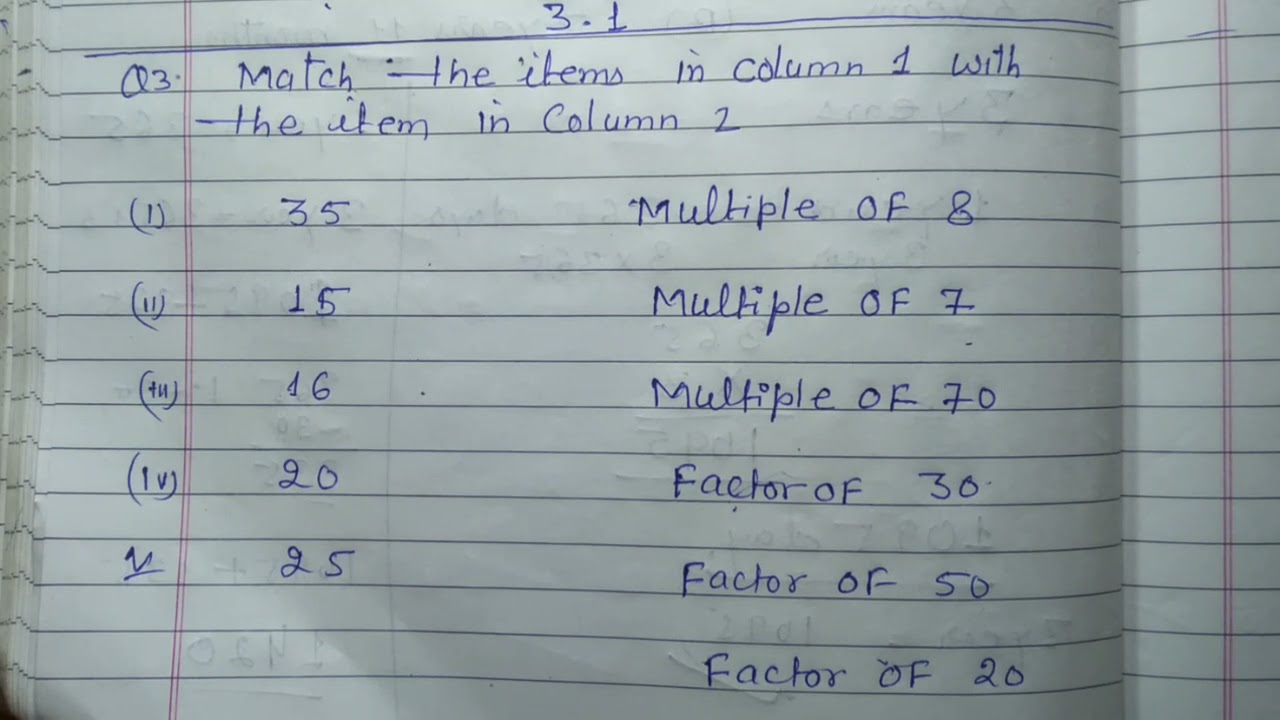 3.1
Q3. Match the items in column 1 with
the item in Column 2
(I) 35 Multiple OF 8
(II) 15 Multiple OF 7
(III) 16 Multiple OF 70
(IV) 20 Factor OF 30
V 25 Factor OF 50
Factor OF 20